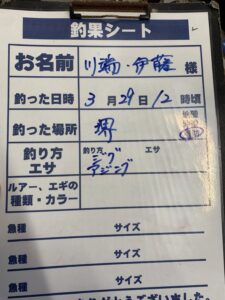 釣果シート
お名前 川端・伊藤 様
釣った日時 3月29日12時頃
釣った場所 堺
釣り方 エサ 釣り方 ジグ アジング エサ
ルアー、エギの種類・カラー
魚種 サイズ
魚種 サイズ
魚種 サイズ